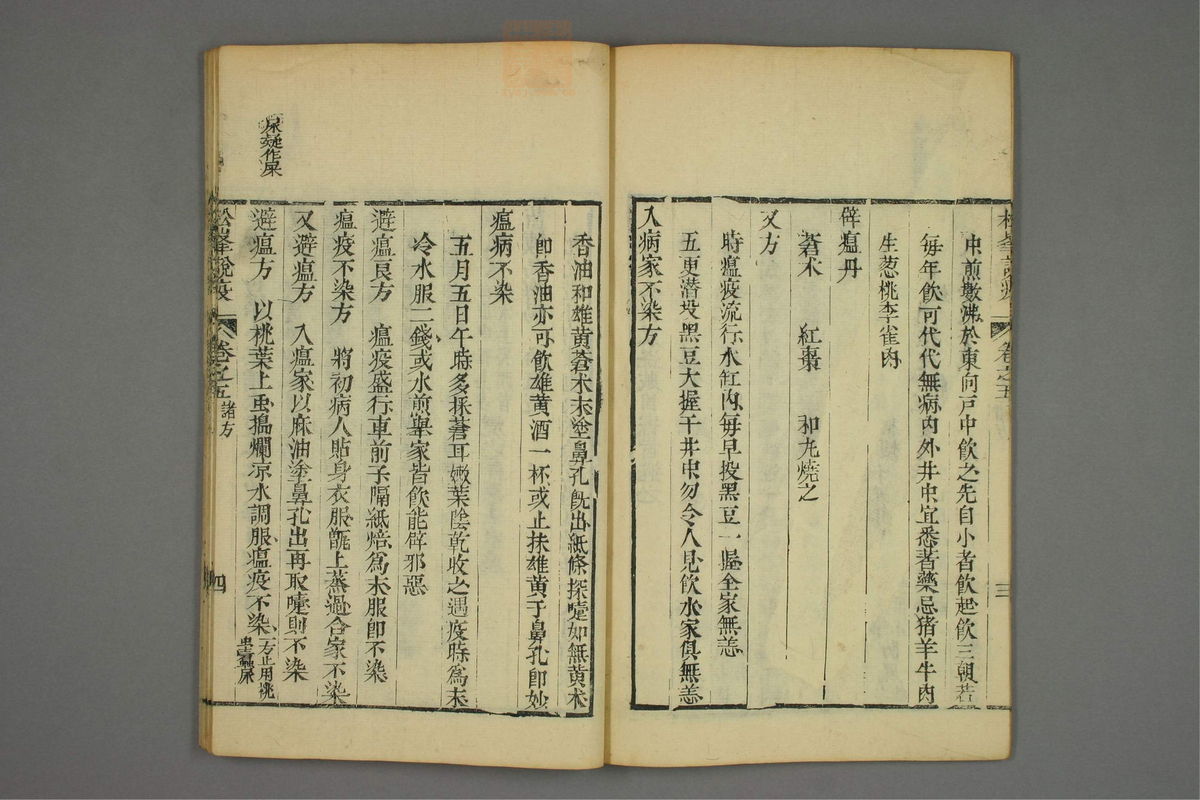 中煎數沸於東向戸中飲之先自小者飲起飲三朝若
每年飲可代代無病內外井中宜悉著藥忌猪羊牛肉
生葱桃李雀肉
辟瘟丹
蒼术　紅棗　和丸燒之
又方
時瘟疫流行水缸內每早投黑豆一握全家無恙
五更潛投黑豆大握于井中勿令人見飲水家俱無恙
入病家不染方
香油和雄黄蒼术末塗鼻孔旣出紙條探嚏如無黄术
卽香油亦可飲雄黄酒一杯或止抹雄黄于鼻孔卽妙
瘟病不染
五月五日午時多採蒼耳嫩葉陰乾收之遇疫時爲末
冷水服二錢或水煎舉家皆飲能辟邪惡
避瘟良方　瘟疫盛行車前子隔紙焙爲末服卽不染
瘟疫不染方　將初病人貼身衣服甑上蒸過合家不染
又避瘟方　入瘟家以麻油塗鼻孔出再取嚏則不染
避瘟方　以桃葉上虫搗爛凉水調服瘟疫不染一方止用桃
虫
屎
松峯說疫　卷之五　諸方　四
卷之五　三
尿疑作屎